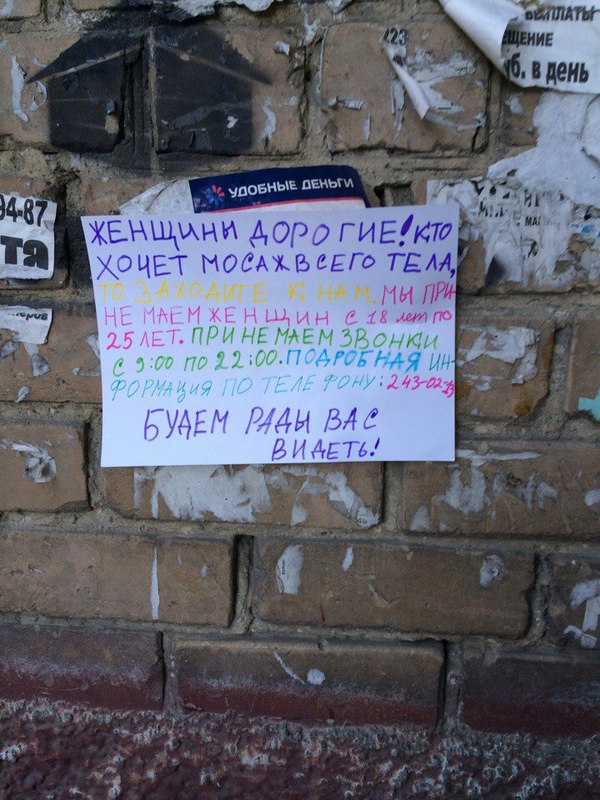 ВЫПЛАТЫ
ЕЩЕНИЕ
уб. в день
УДОБНЫЕ ДЕНЬГИ
94-87
та
ЖЕНЩИНЫ ДОРОГИЕ! КТО
ХОЧЕТ МОСАЖ ВСЕГО ТЕЛА,
ТО ЗАХОДИТЕ К НАМ. МЫ ПРИ
НЕ МАЕМ ЖЕНЩИН С 18 лет по
25 ЛЕТ. ПРИ НЕ МАЕМ ЗВОНКИ
С 9:00 ПО 22:00. ПОДРОБНАЯ ИН-
ФОРМАЦИЯ ПО ТЕЛЕ ФОНУ: 243-02-23
БУДЕМ РАДЫ ВАС
ВИДЕТЬ!